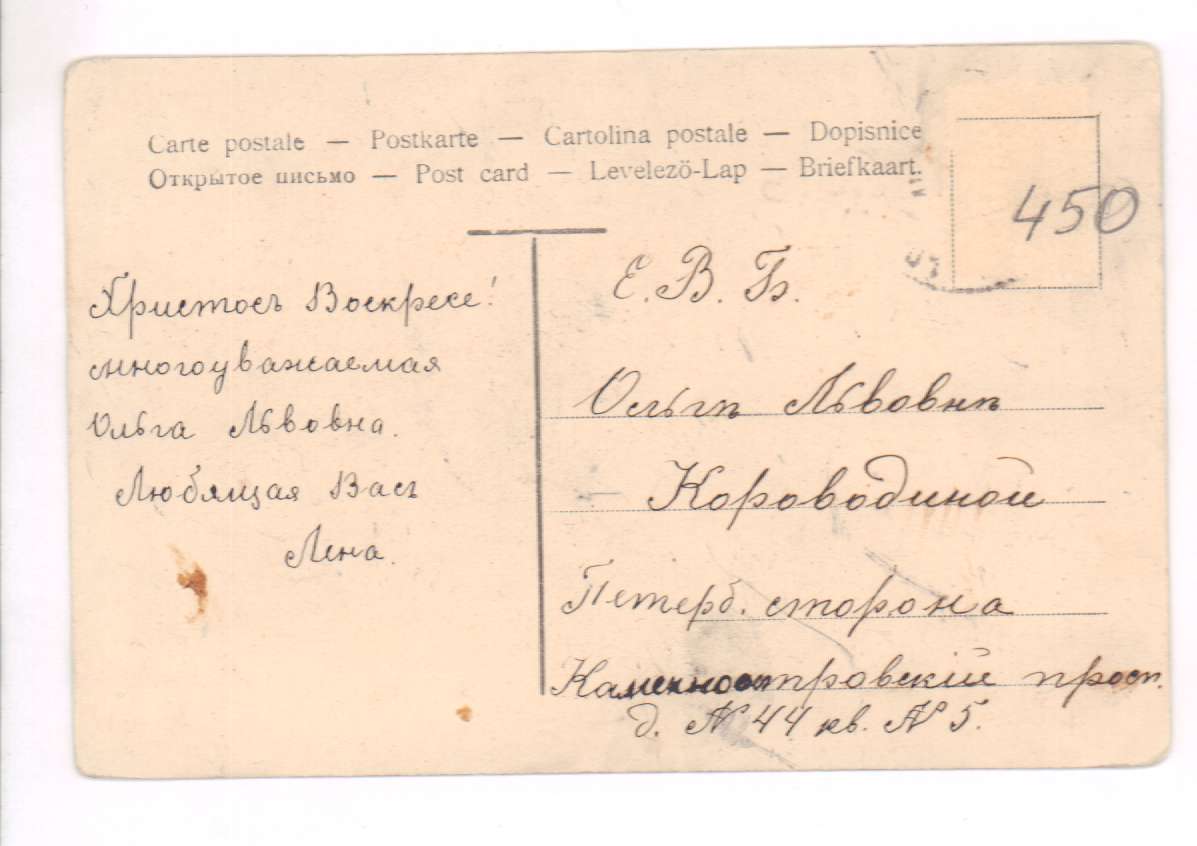 Carte postale — Postkarte — Cartolina postale — Dopisnice
Открытое письмо — Post card — Levelező-Lap — Briefkaart.
450
Христосъ Воскресе!
многоуважаемая
Ольга Львовна.
Любящая Васъ
Лена.
Е. В. Б.
Ольгѣ Львовнѣ
Короводиной
Петерб. сторона
Каменноостровскій просп.
д. № 44 кв. № 5.